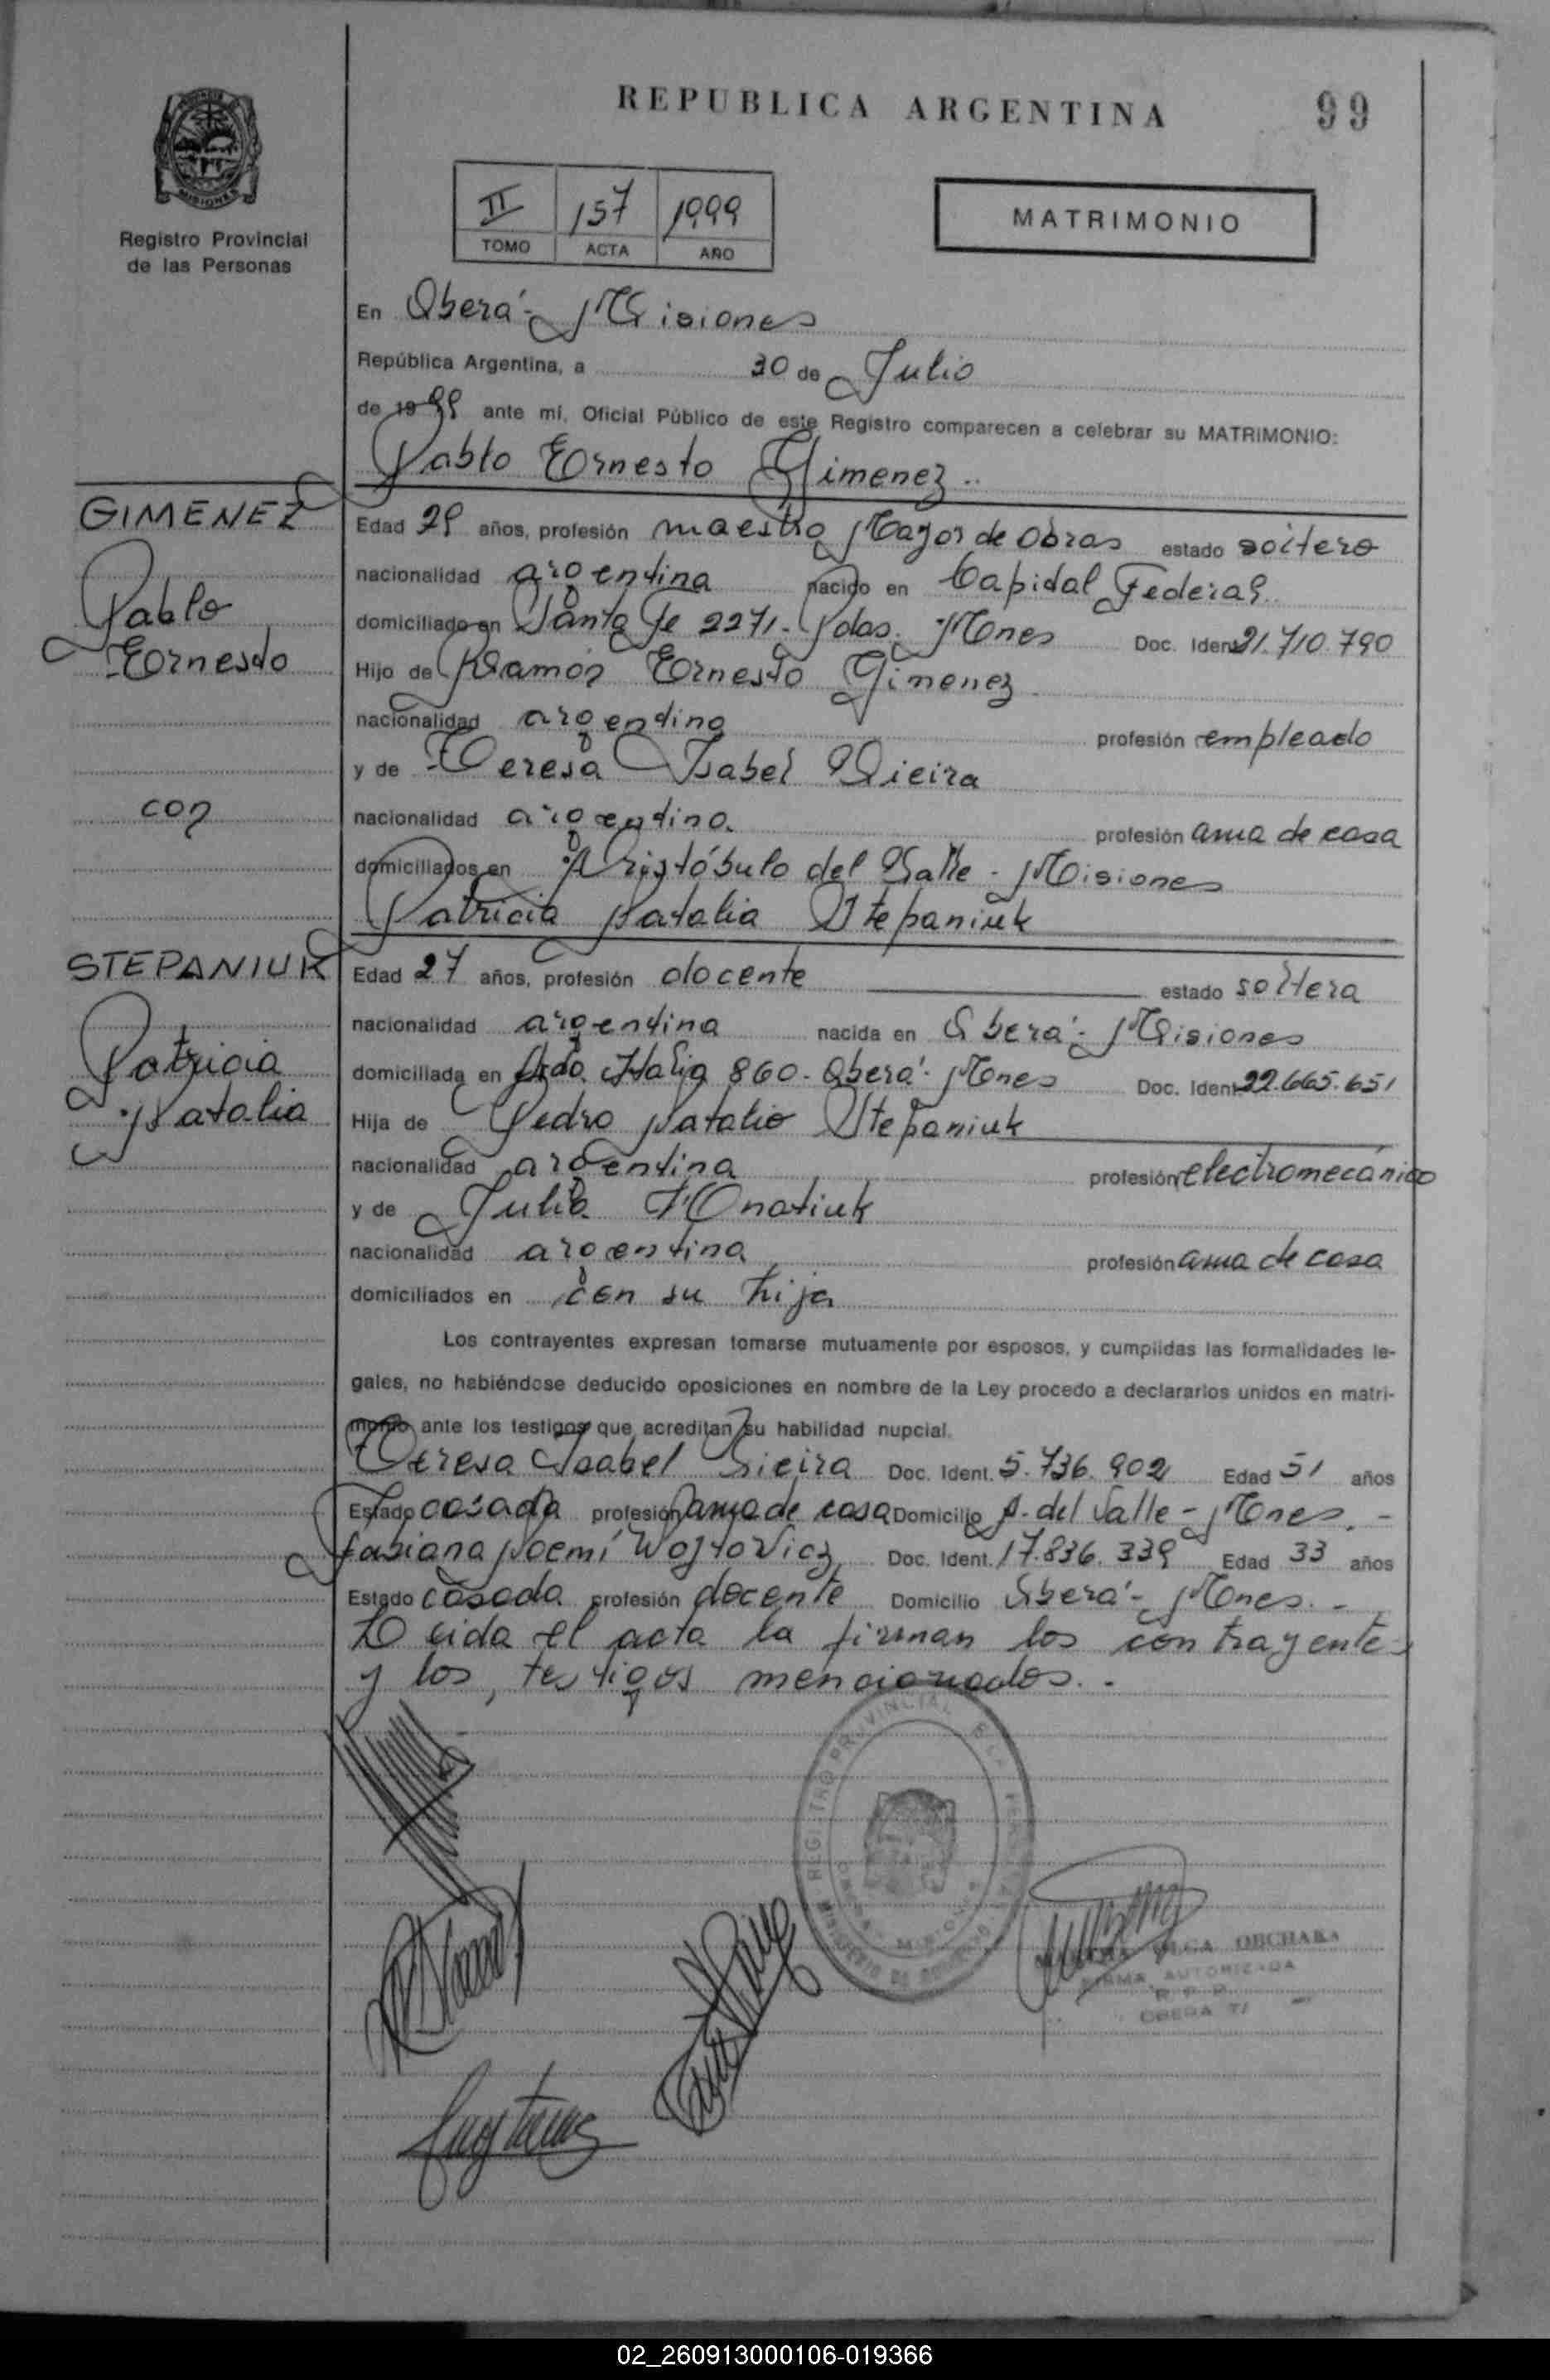 REPUBLICA ARGENTINA
99
MISIONES
Registro Provincial
de las Personas
II 157 1999
TOMO ACTA AÑO
MATRIMONIO
En Oberá - Misiones
República Argentina, a 30 de Julio
de 1999 ante mí, Oficial Público de este Registro comparecen a celebrar su MATRIMONIO:
Pablo Ernesto Gimenez
GIMENEZ
Pablo
Ernesto
con
STEPANIUK
Patricia
Natalia
Edad 29 años, profesión maestro Mayor de Obras estado soltero
nacionalidad argentina nacido en Capital Federal
domiciliado en Santa Fe 2271 - Pdas. Mnes Doc. Ident. 21.710.790
Hijo de Ramón Ernesto Gimenez
nacionalidad argentina profesión empleado
y de Teresa Isabel Vieira
nacionalidad argentina profesión ama de casa
domiciliados en Aristóbulo del Valle - Misiones
Patricia Natalia Stepaniuk
Edad 27 años, profesión docente estado soltera
nacionalidad argentina nacida en Oberá - Misiones
domiciliada en Italia 860 - Oberá - Mnes Doc. Ident. 22.665.651
Hija de Pedro Natalio Stepaniuk
nacionalidad argentina profesión electromecánico
y de Julia
nacionalidad argentina profesión ama de casa
domiciliados en con su hija
Los contrayentes expresan tomarse mutuamente por esposos, y cumplidas las formalidades le-
gales, no habiéndose deducido oposiciones en nombre de la Ley procedo a declararlos unidos en matri-
monio ante los testigos que acreditan su habilidad nupcial.
Teresa Isabel Vieira Doc. Ident. 5.736.902 Edad 51 años
Estado casada profesión ama de casa Domicilio A. del Valle - Mnes. -
Fabiana Noemí Wojtovicz Doc. Ident. 17.836.339 Edad 33 años
Estado casada profesión docente Domicilio Oberá - Mnes. -
Leida el acta la firman los contrayentes
y los testigos mencionados. -
REGISTRO PROVINCIAL DE LAS PERSONAS
OLGA OBCHARA
FIRMA AUTORIZADA
R. P. P.
OBERA
02_260913000106-019366